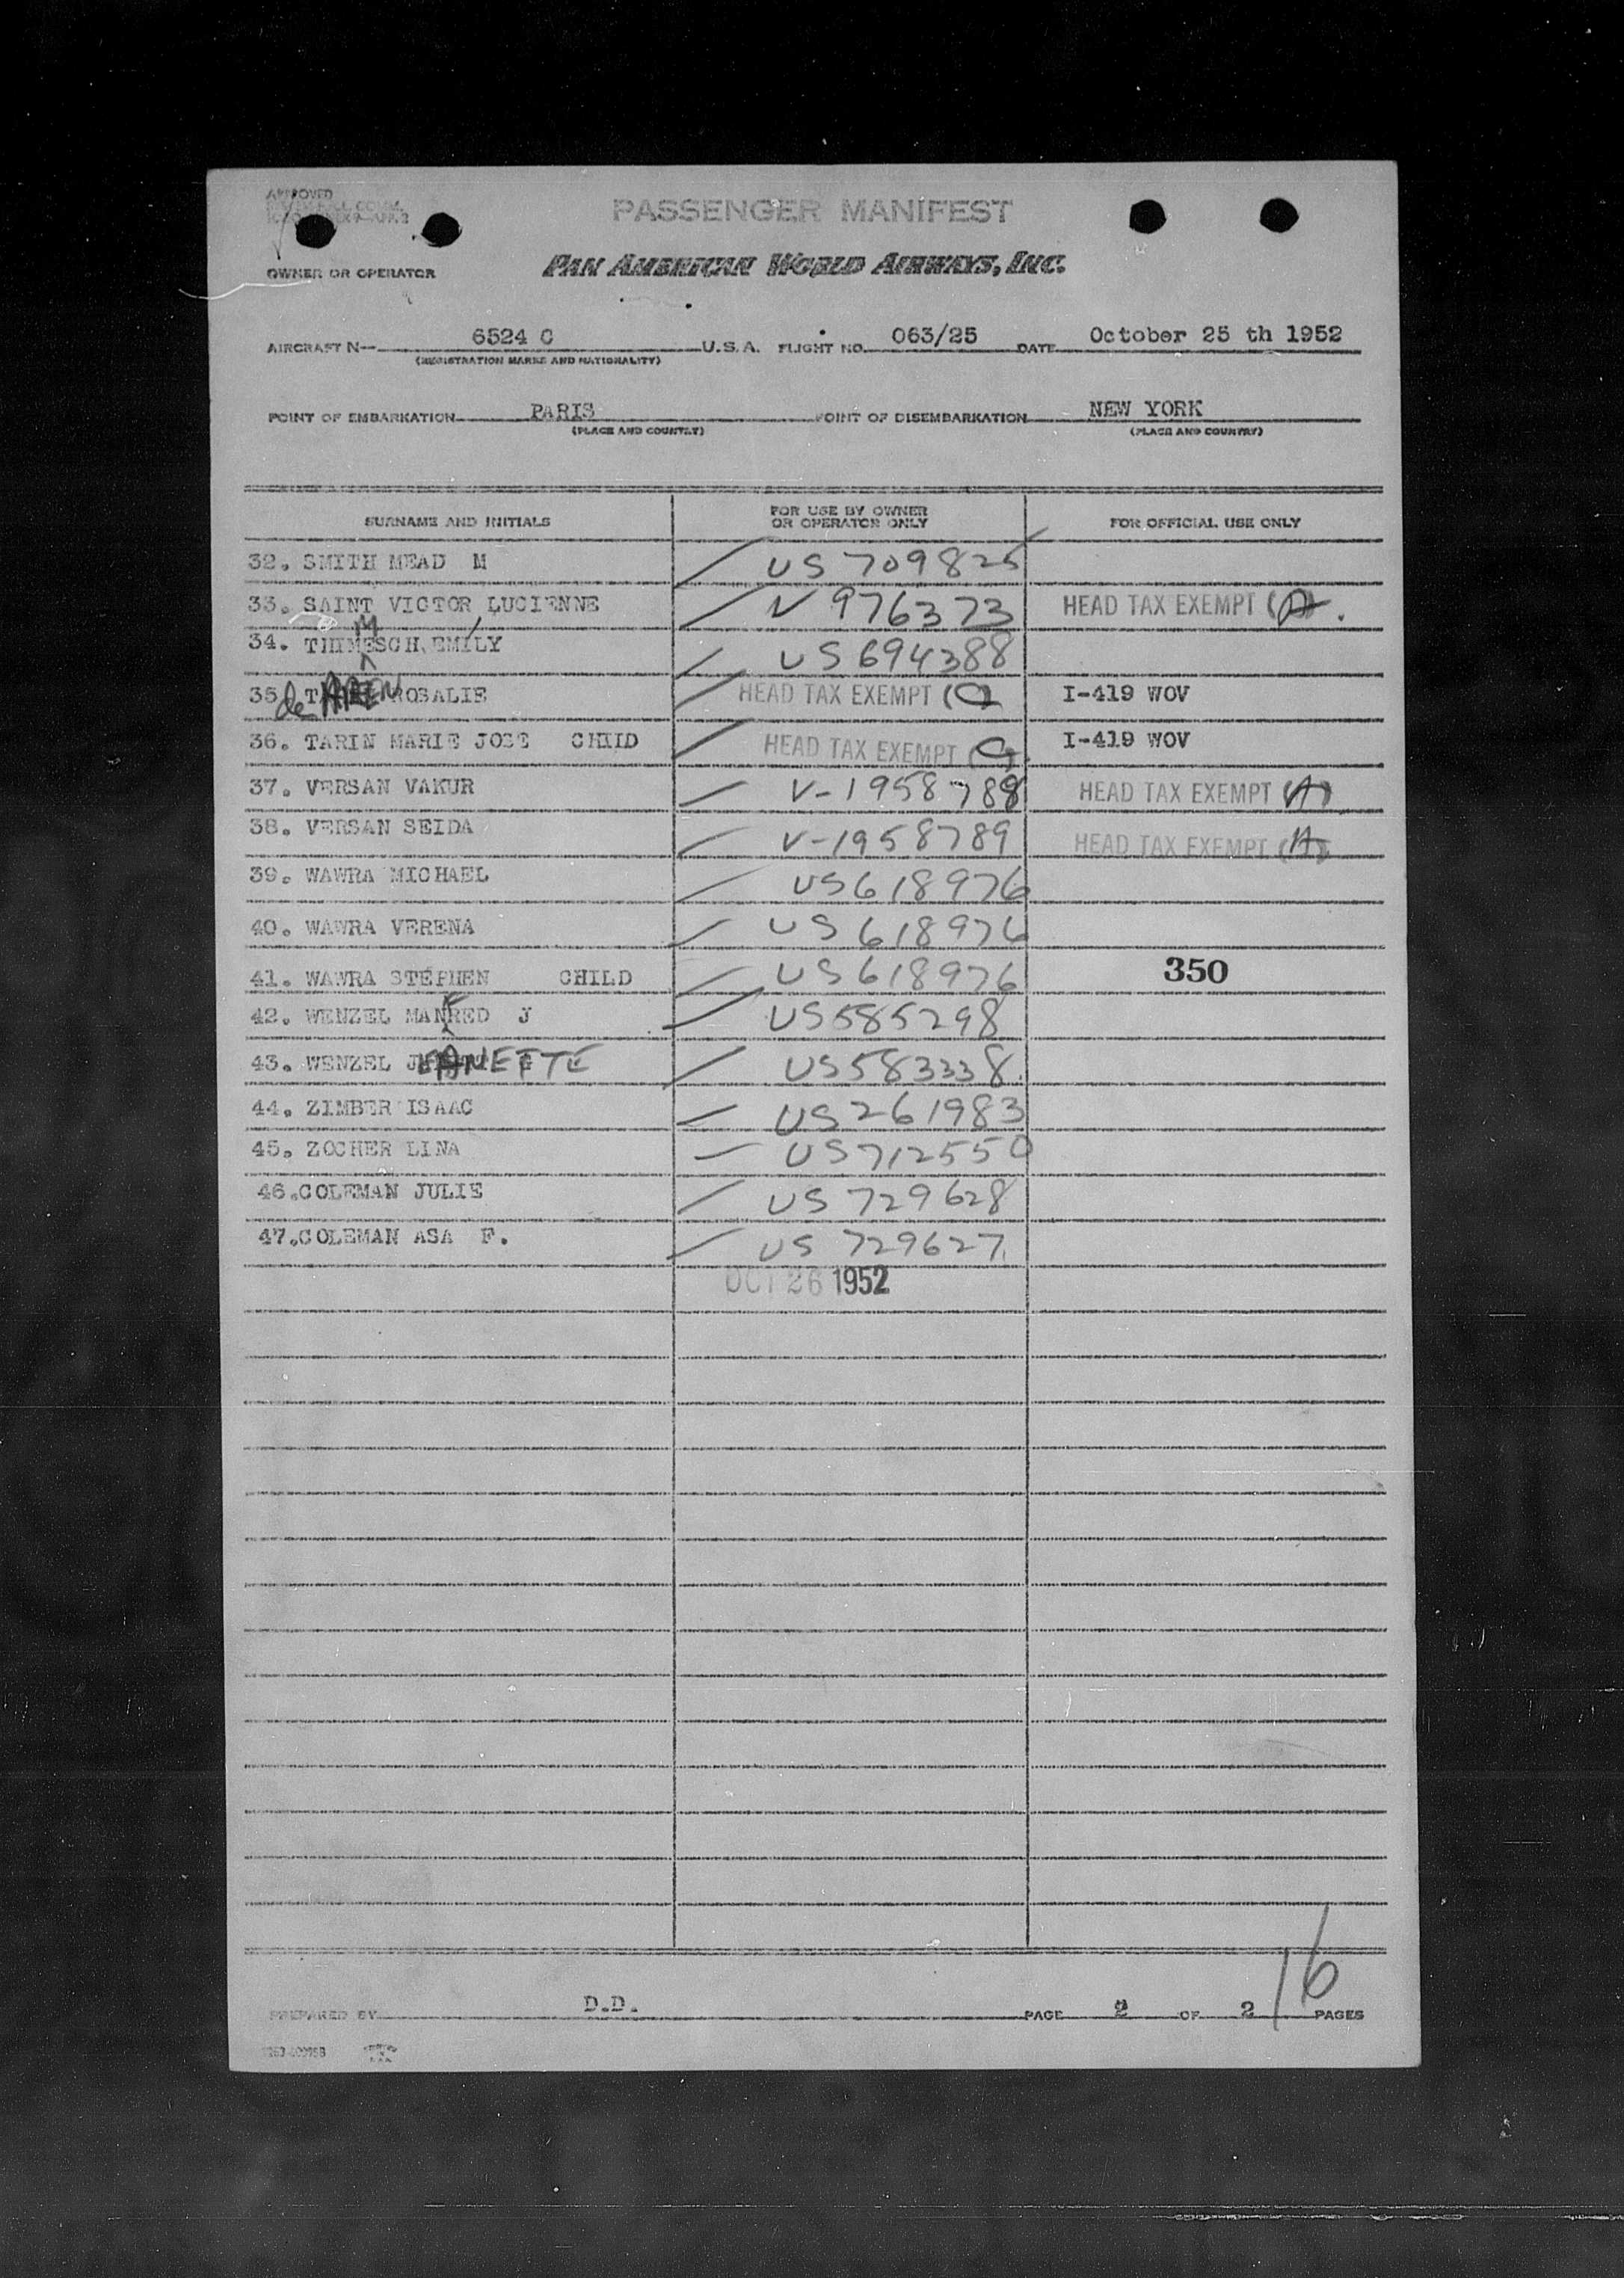 APPROVED
PASSENGER MANIFEST
OWNER OR OPERATOR PAN AMERICAN WORLD AIRWAYS, INC.
AIRCRAFT N— 6524 C U.S.A. FLIGHT NO. 063/25 DATE October 25 th 1952
(REGISTRATION MARKS AND NATIONALITY)
POINT OF EMBARKATION PARIS POINT OF DISEMBARKATION NEW YORK
(PLACE AND COUNTRY) (PLACE AND COUNTRY)
SURNAME AND INITIALS FOR USE BY OWNER OR OPERATOR ONLY FOR OFFICIAL USE ONLY
32. SMITH MEAD M US 709825
33. SAINT VICTOR LUCIENNE V 976373 HEAD TAX EXEMPT (A)
M
34. THIMESCH EMILY US 694388
35. de ROSALIE HEAD TAX EXEMPT I-419 WOV
36. TARIN MARIE JOSE CHILD HEAD TAX EXEMPT I-419 WOV
37. VERSAN VAKUR V-1958788 HEAD TAX EXEMPT (A)
38. VERSAN SEIDA V-1958789 HEAD TAX EXEMPT (A)
39. WAWRA MICHAEL US 618976
40. WAWRA VERENA US 618976
41. WAWRA STEPHEN CHILD US 618976 350
F
42. WENZEL MANRED J US 585298
43. WENZEL JEANETTE US 583338
44. ZIMBER ISAAC US 261983
45. ZOCHER LINA US 712550
46. COLEMAN JULIE US 729628
47. COLEMAN ASA F. US 729627
OCT 26 1952
16
PREPARED BY D.D. PAGE 2 OF 2 PAGES